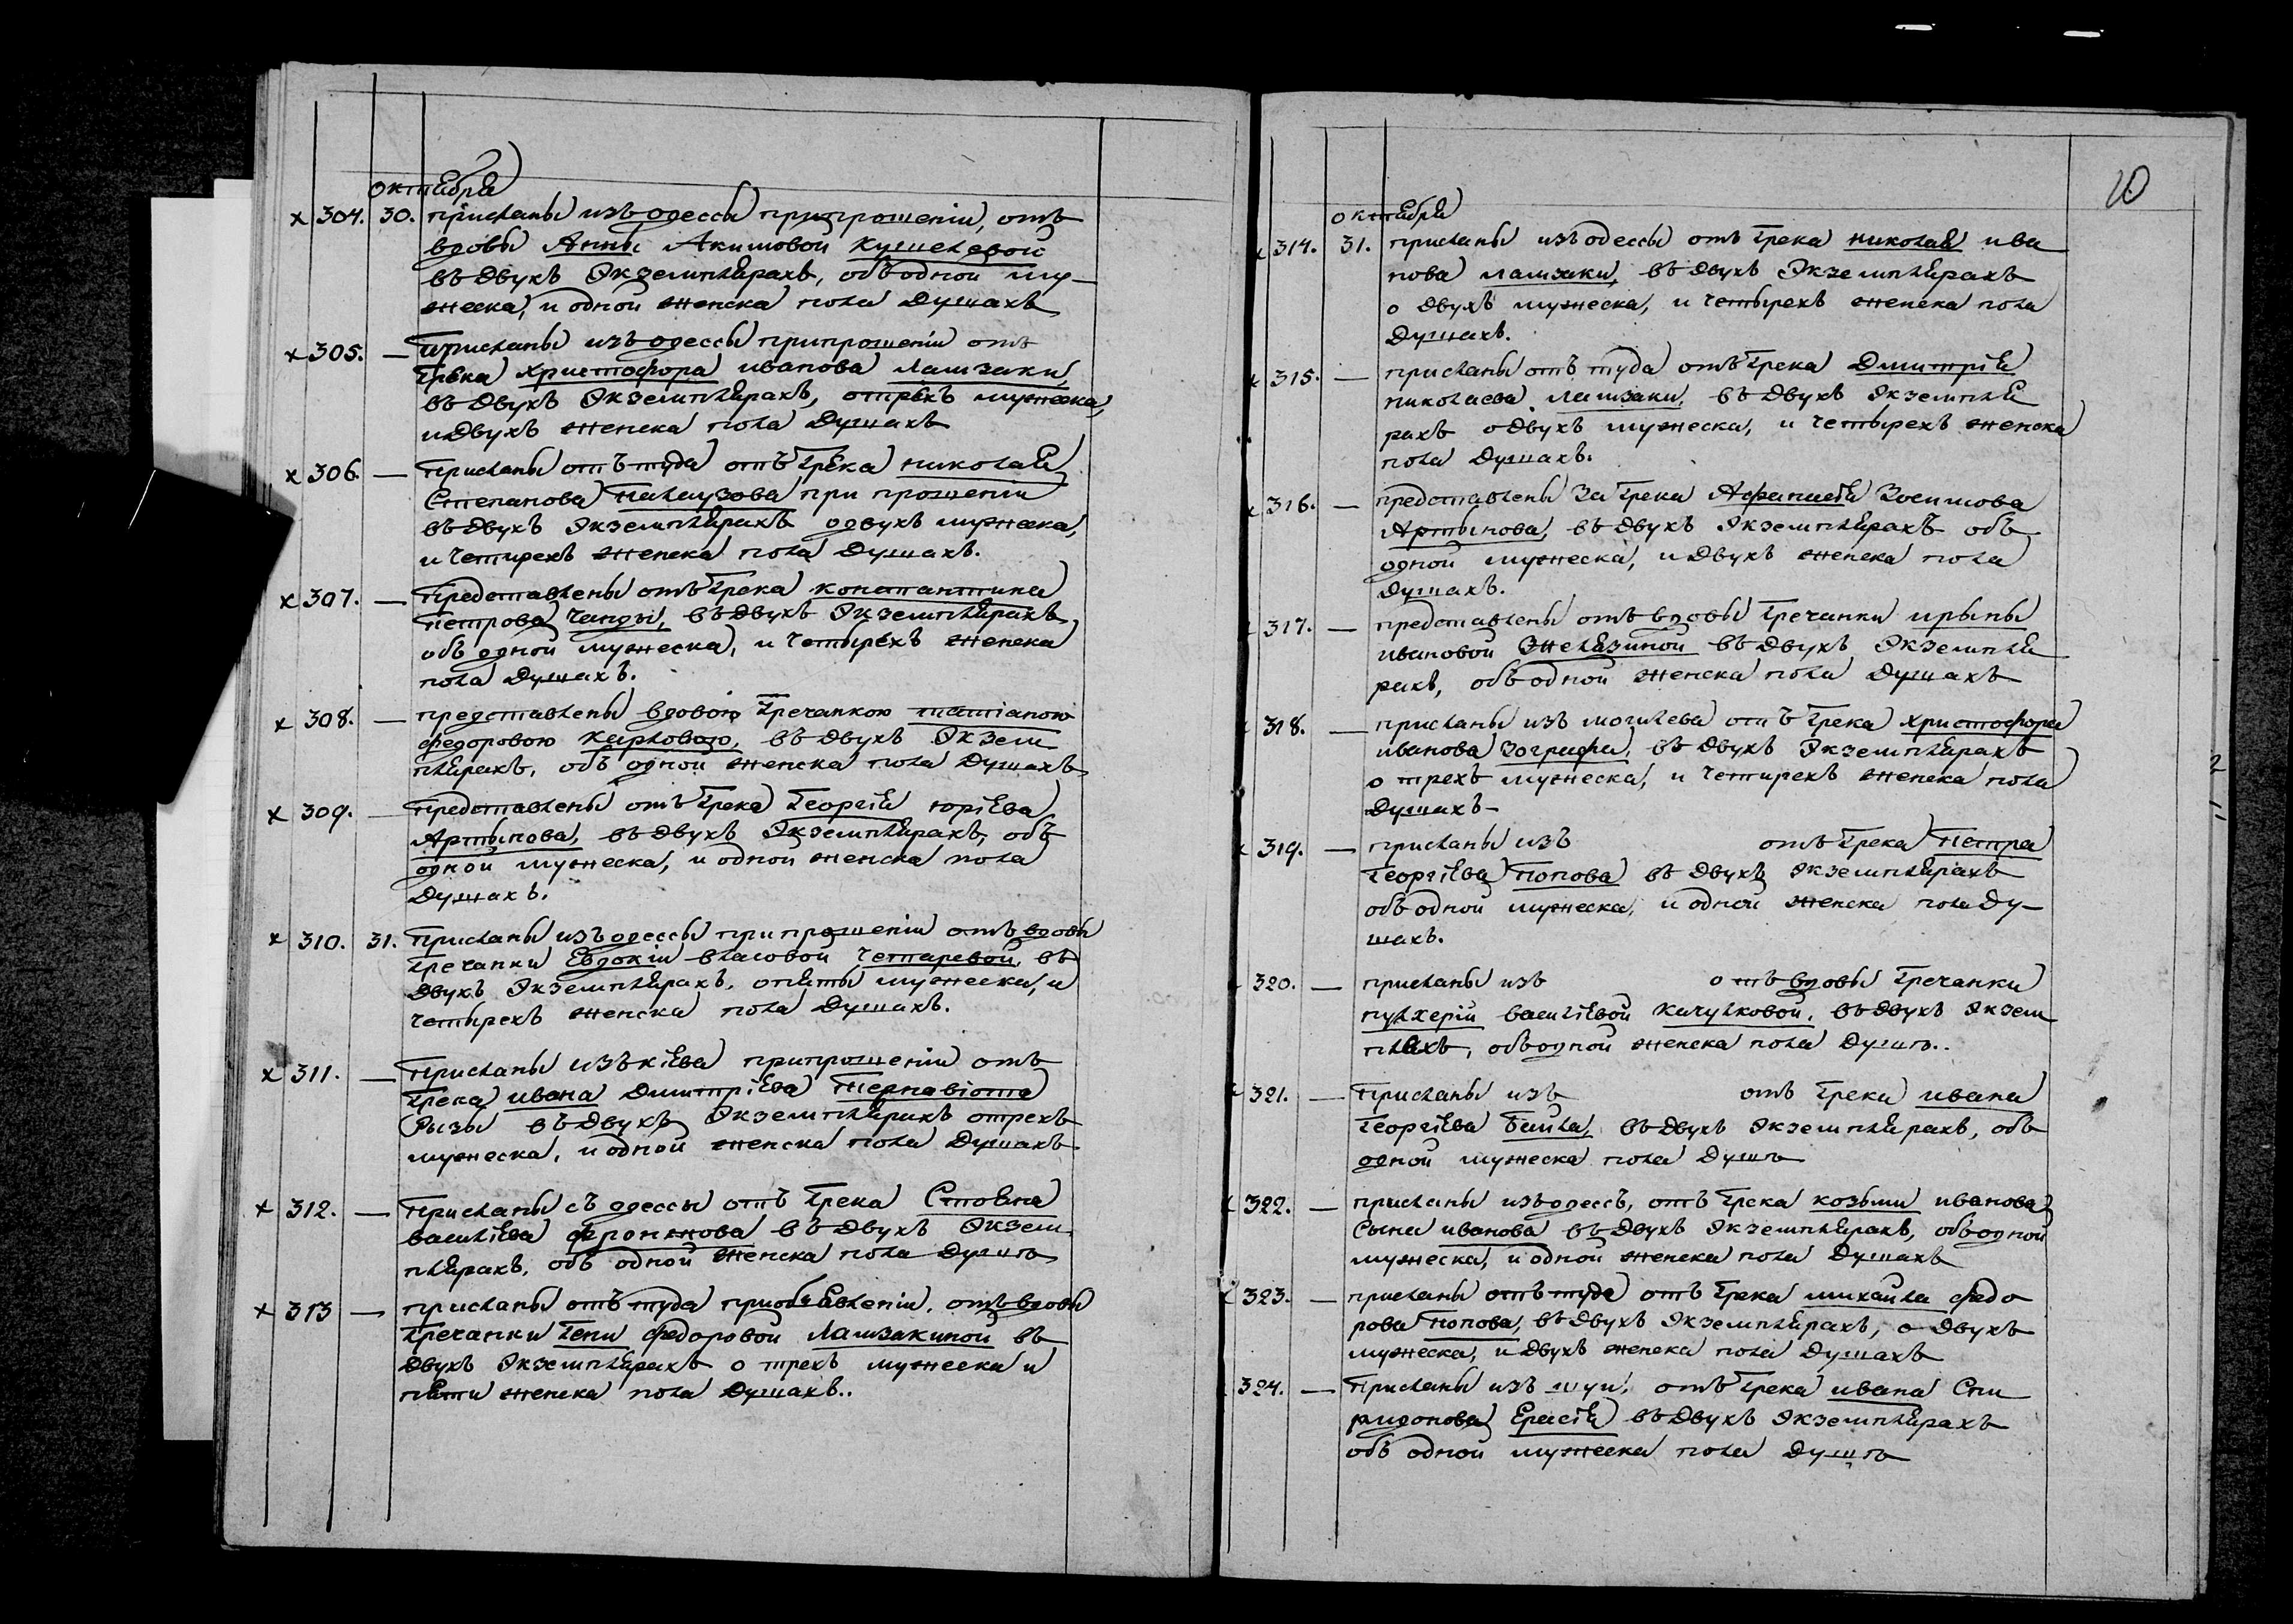 октября
х 304. 30. присланы изъ одессы при прошеніи, отъ
вдовы Анны Акимовой Кушелевой
въ двухъ Экземплярахъ, объ одной му-
жеска, и одной женска пола душахъ
х 305. — Присланы изъ одессы при прошеніи отъ
Грека христофора иванова Ламзаки,
въ двухъ Экземплярахъ, отрехъ мужеска,
и двухъ женска пола душахъ
х 306. — Присланы отъ туда отъ Грека николая
Степанова Палаузова при прошеніи
въ двухъ Экземплярахъ одвухъ мужеска,
и четирехъ женска пола душахъ.
х 307. — Представлены отъ Грека константина
Петрова Чанды, въ двухъ Экземплярахъ,
объ одной мужеска, и четырехъ женска
пола душахъ.
х 308. — представлены вдовою Гречанкою татіаною
федоровою Карповою, въ двухъ Экзем
плярахъ, объ одной женска пола душахъ
х 309. — Представлены отъ Грека Георгія юріева
Артынова, въ двухъ Экземплярахъ, объ
одной мужеска, и одной женска пола
душахъ.
х 310. 31. Присланы изъ одессы при прошеніи отъ вдовы
Гречанки Евдокіи власовой Четаревой, въ
двухъ Экземплярахъ, опяты мужеска, и
четырехъ женска пола душахъ.
х 311. — Присланы изъ кіева при прошеніи отъ
Грека ивана Димитріева Тернавіота
Рызы въ двухъ Экземплярахъ отрехъ
мужеска, и одной женска пола душахъ.
х 312. — Присланы съ одессы отъ Грека Стояна
василіева фронжова въ двухъ Экзем
плярахъ, объ одной женска пола душъ
х 313 — присланы отъ туда при объявленіи, отъ вдовы
Гречанки Гени федоровой Ламзакиной въ
двухъ Экземплярахъ о трехъ мужеска и
пяти женска пола душахъ..
10
октября
х 314. 31. присланы изъ одессы отъ Грека николая ива
нова Ламзаки, въ двухъ Экземплярахъ
о двухъ мужеска, и четырехъ женска пола
душахъ.
х 315. — присланы отъ туда отъ Грека Дмитрія
николаева Ламзаки, въ двухъ Экземпля
рахъ о двухъ мужеска, и четырехъ женска
пола душахъ.
х 316. — представлены за Грека Афанасія Зосимова
Артынова, въ двухъ Экземплярахъ объ
одной мужеска, и двухъ женска пола
душахъ.
317. — представлены отъ вдовы Гречанки ирыны
ивановой Желязиной въ двухъ Экземпля
рахъ, объ одной женска пола душахъ
318. — присланы изъ могилева отъ Грека христофора
иванова Зографа, въ двухъ Экземплярахъ
о трехъ мужеска, и четирехъ женска пола
душахъ
х 319. — присланы изъ отъ Грека Петра
Георгіева Попова въ двухъ Экземплярахъ
объ одной мужеска, и одной женска пола ду-
шахъ.
320. — присланы изъ отъ вдовы Гречанки
пулхеріи василіевой Качулковой, въ двухъ Экзем
пляхъ, объ одной женска пола душъ..
х 321. — Присланы изъ отъ Грека ивана
Георгіева Бимба, въ двухъ Экземплярахъ, объ
одной мужеска пола душъ
х 322. — присланы изъ одессъ, отъ Грека козьми иванова
Сына иванова въ двухъ Экземплярахъ, объ одной
мужеска, и одной женска пола душахъ
х 323. — присланы отъ туда отъ Грека михаила федо
рова Попова, въ двухъ Экземплярахъ, о двухъ
мужеска, и двухъ женска пола душахъ
324. — Присланы изъ шуи, отъ Грека ивана Спи
ридонова Ерасія въ двухъ Экземплярахъ
объ одной мужеска пола душъ